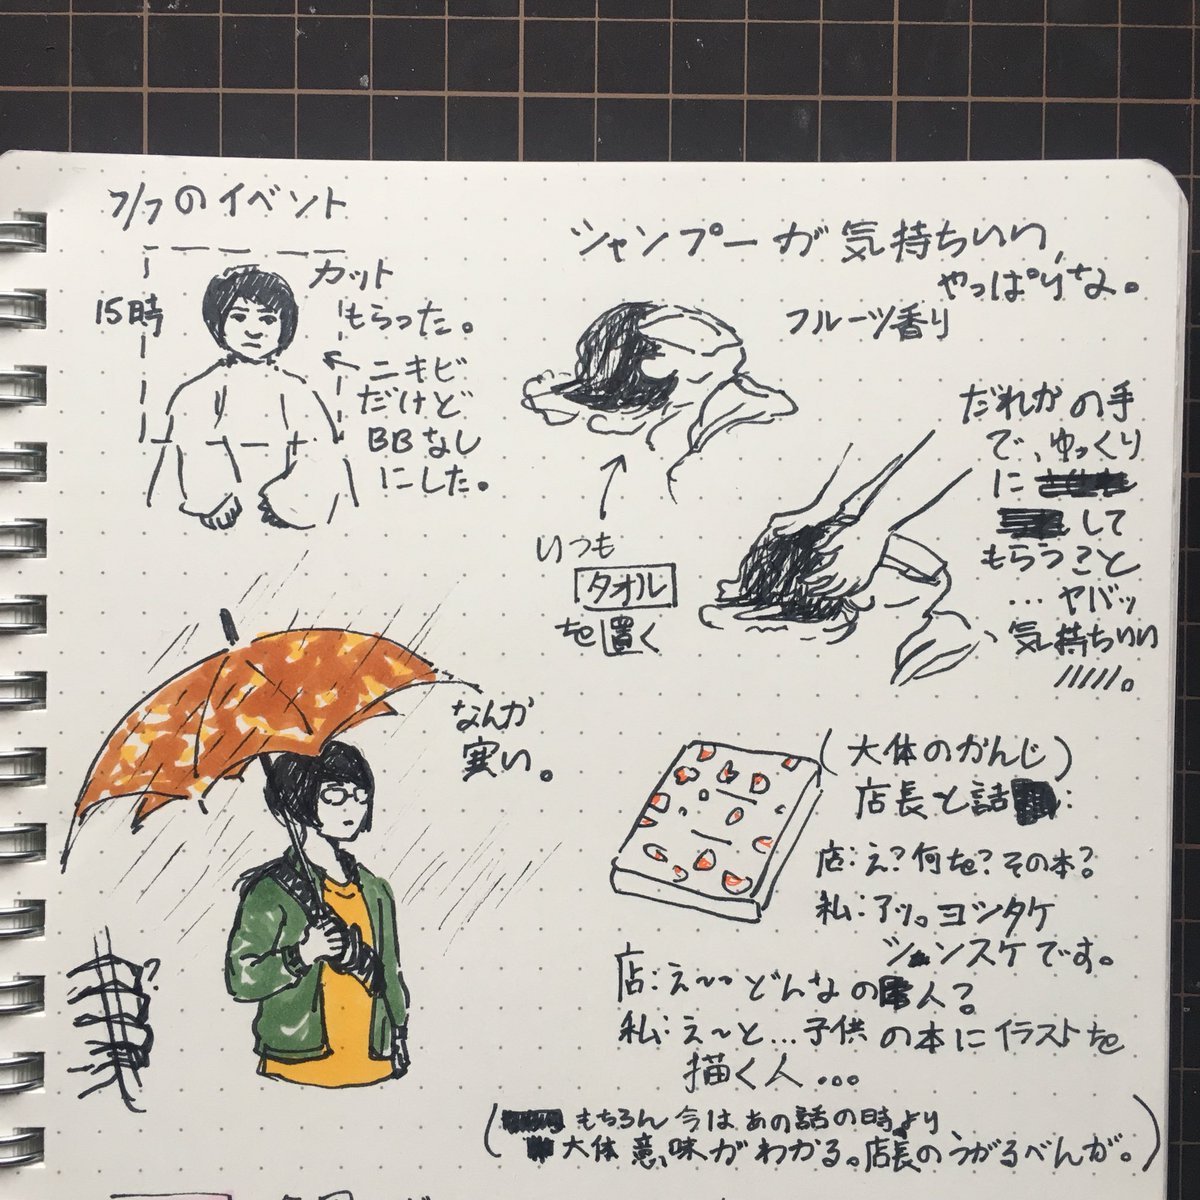 7/7のイベント
15時
カット
もらった。
ニキビ
だけど
BBなし
にした。
シャンプーが気持ちいい、
やっぱりな。
フルーツ香り
いつも
タオル
を置く
だれかの手
で、ゆっくり
に
して
もらうこと
...ヤバッ
気持ちいい
/////。
なんか
寒い。
?
(大体のかんじ)
店長と話:
店:え?何を?その本?
私:アッ。ヨシタケ
シンスケです。
店:え〜〜どんなの人?
私:え〜と...子供の本にイラストを
描く人...
(もちろん今はあの話の時より
大体意味がわかる。店長のうがるべんが。)